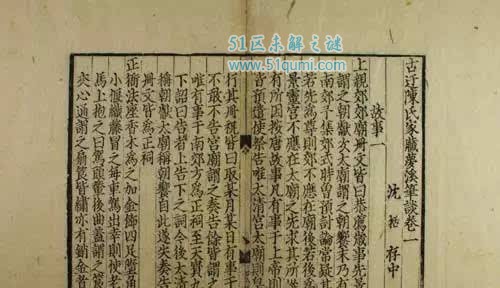 51区未解之谜
www.51qumi.com
古迂陳氏家藏夢溪筆談卷一
沈括存中
故事一
上親郊廟冊文皆曰恭薦歲事先景
謂之朝獻次太廟謂之朝饗末乃有
南郊予集郊式時曾預討論常疑其
若先為尊則郊不應在廟後若後
景靈宮不應在太廟之先求其所
按唐故事凡有事于上帝則
皆預遣使祭告唯太清宮太廟則皇
行其冊祝皆曰取某月某日有事于
不敢不告宮廟謂之奏告餘皆謂
唯有事于南郊方為正祠至天寶九
下詔曰告者上告下之詞今後太清
稱朝獻太廟稱朝饗自此遂失奏告
冊文皆為正祠
正衙法座香木為之加金飾四足墮角
小偃織藤冒之每車駕出幸則使老
馬上抱之曰駕頭輦後曲蓋謂之筤
夾心通謂之扇筤皆繡亦有銷金者